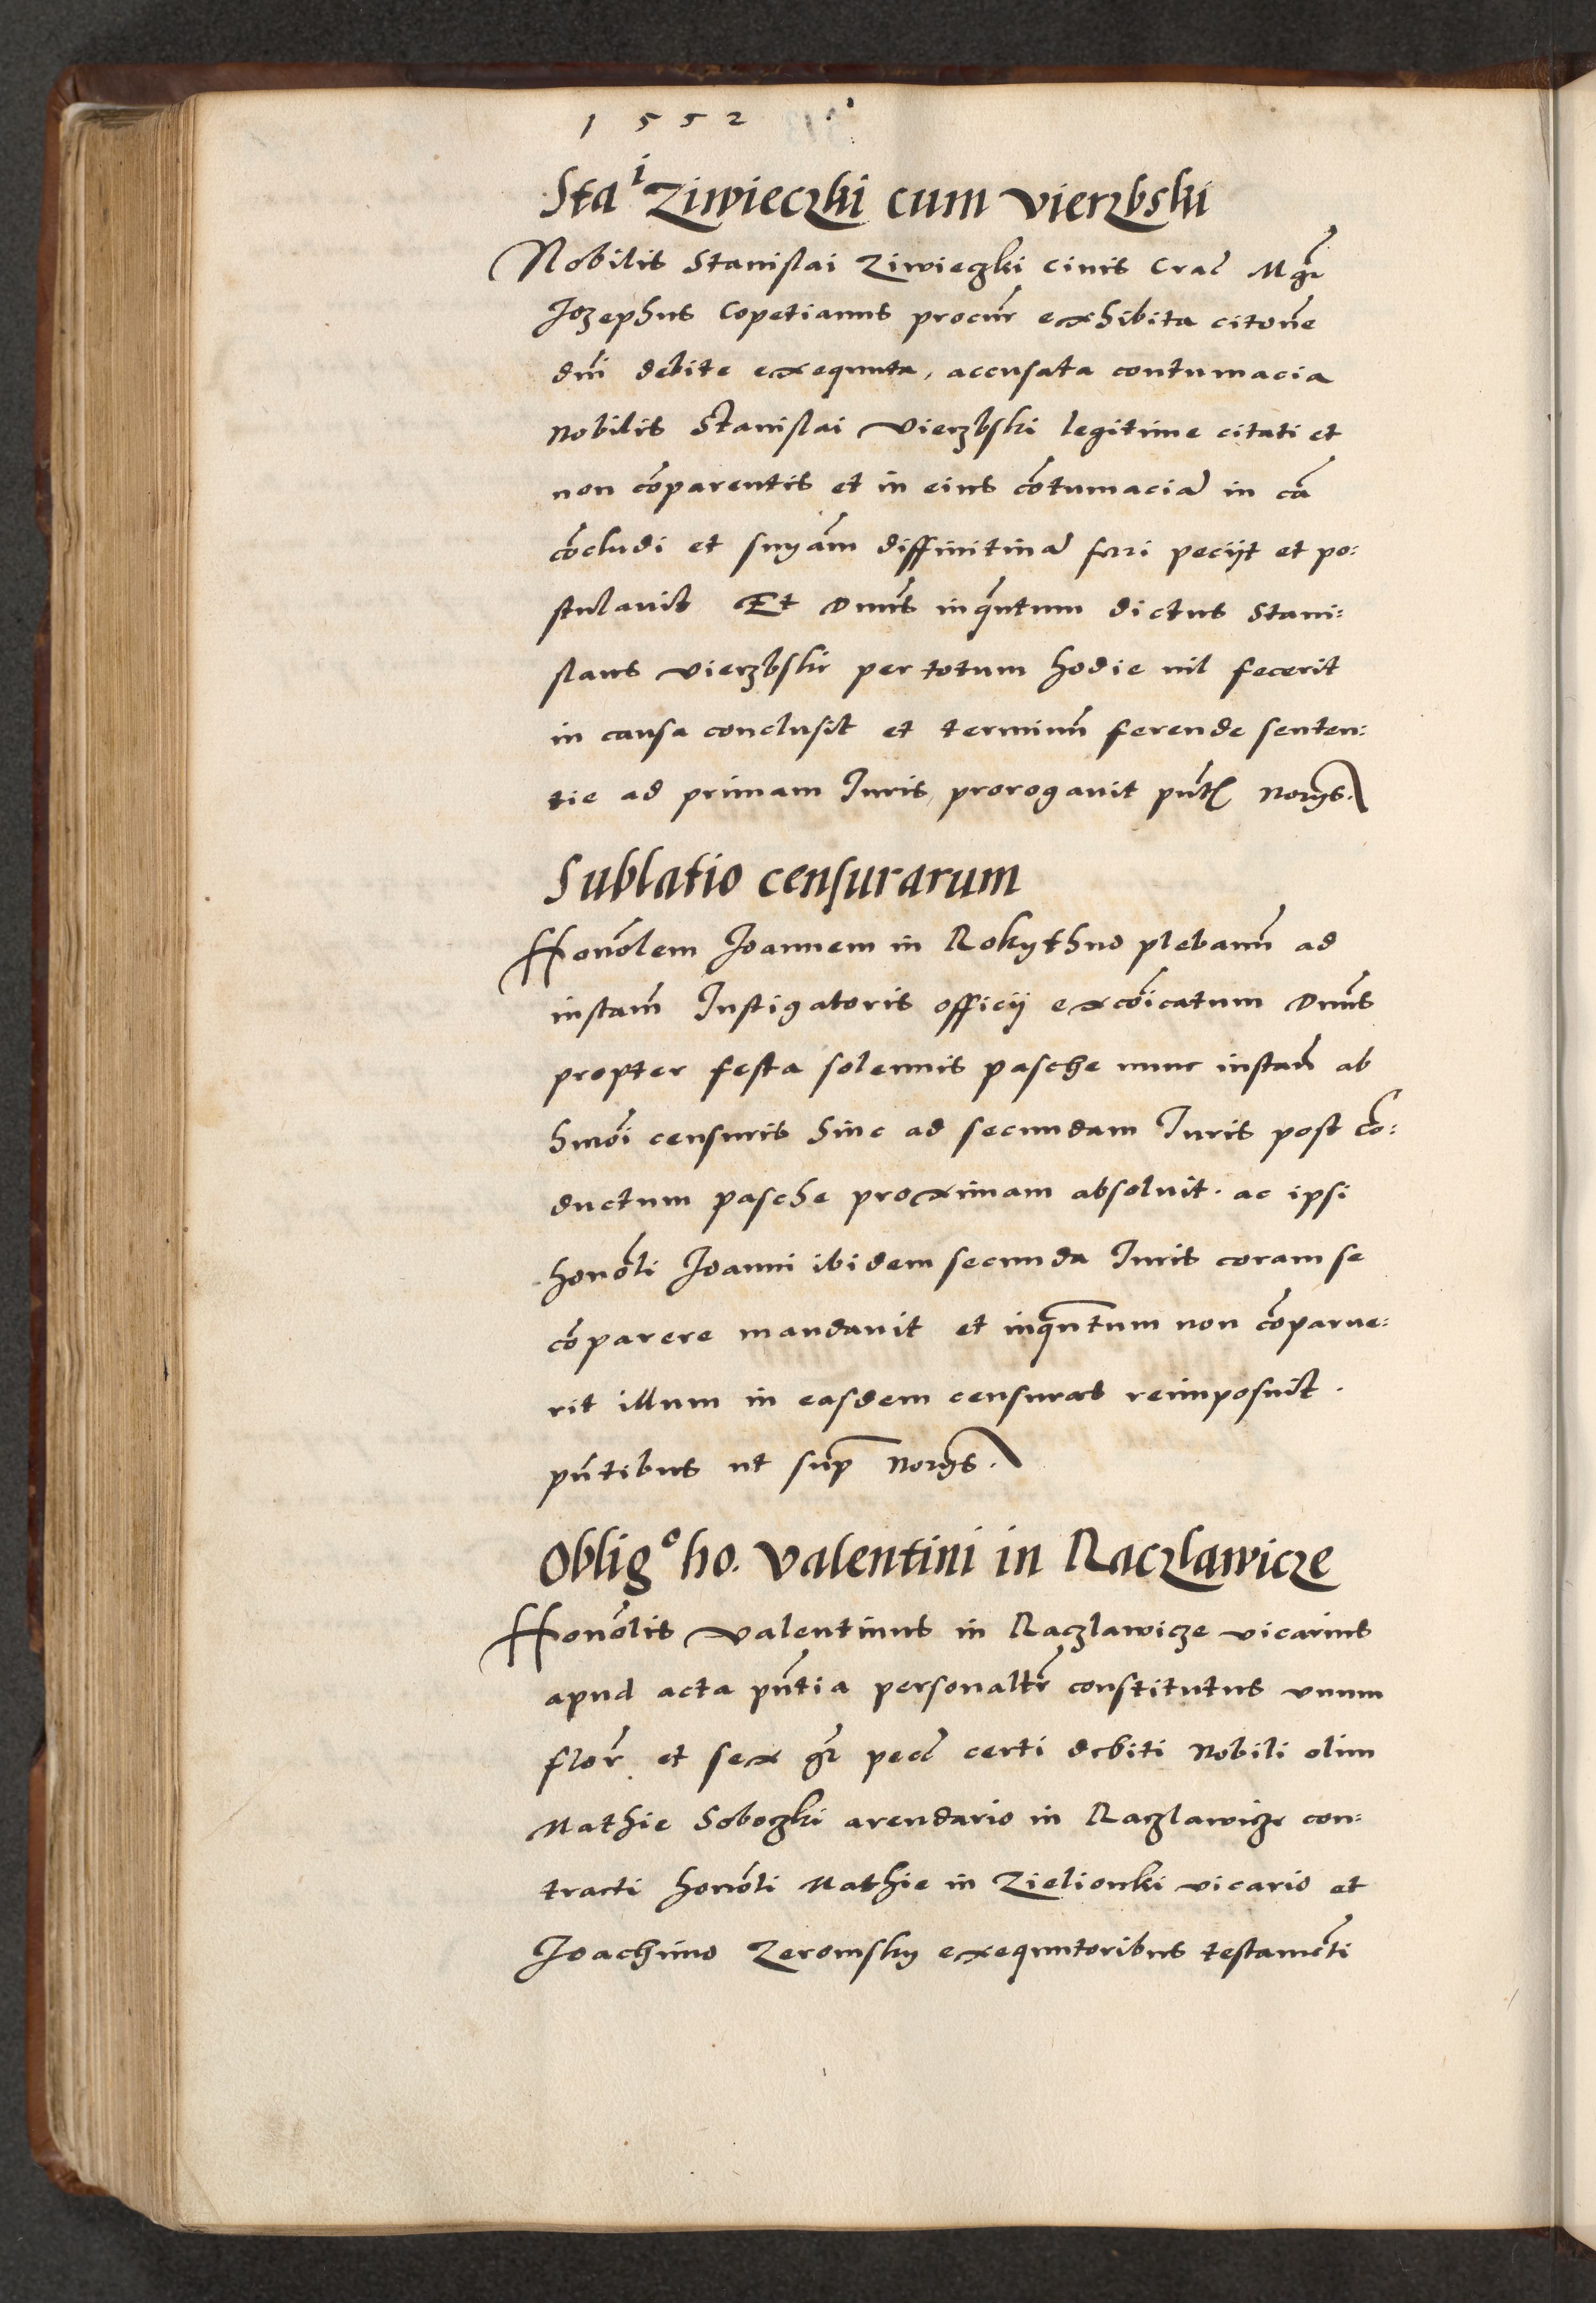 1 5 5 2
Sta^i Ziwieczki cum Vierzbski
Nobilis Stanislai Ziwieczki civis Crac̃ Mgr̃
Jozephus Copetianus procur̃ exhibita citone̅
dni̅ debite exequuta, accusata contumacia
nobilis Stanislai Vierzbski legitime citati et
non co̅parentis et in eius co̅tumacia̅ in ca̅
co̅cludi et snya̅m diffinitiva̅ ferri pecijt et po:
stulavit Et Dnus̅ inqua̅ntum dictus Stani:
slaus Vierzbski per totum hodie nil fecerit
in causa conclusit et terminu̅ ferende senten:
tie ad primam Juris, prorogavit pnt̅ Norijs.
Sublatio censurarum
Hono̅lem Joannem in Rokythno plebanu̅ ad
instam̅ Instigatoris officij exco̅icatum Dnus̅
propter festa solennis pasche nunc instan̅ ab
hmo̅i censuris hinc ad secundam Juris post co̅:
ductum pasche proximam absoluit. ac ipsi
hono̅li Joanni ibidem secunda Juris coram se
co̅parere mandavit et inqua̅ntum non co̅parue:
rit illum in easdem censuras reimposuit.
pn̅tibus ut sup̅ Norijs.
Oblig^o ho. Valentini in Raczlawicze
Hono̅lis Valentinus in Raczlawicze vicarius
apud acta pn̅tia personaltr̅ constitutus unum
flor̅ et sex gr̅ pec̃ certi debiti Nobili olim
Mathie Soboczki arendario in Raczlawicze con:
tracti hono̅li Mathie in Zielionki vicario et
Joachimo Zeromsky exequutoribus testame̅ti